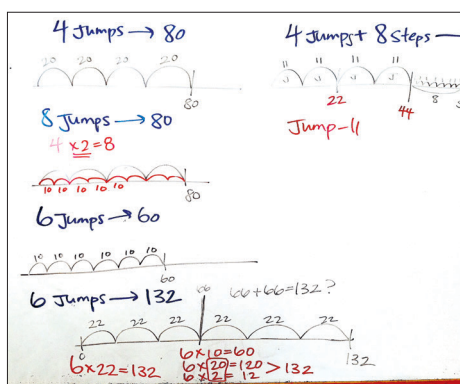 4 Jumps → 80
20 20 20 20
80
8 Jumps → 80
4 ×2=8
10 10 10 10 10
80
6 Jumps → 60
10 10 10 10 10 10
60
6 Jumps → 132
66+66=132?
66
22 22 22 22 22 22
0
132
6×22=132
6×10=60
6×20=120
6×2=12 >132
4 Jumps+ 8 Steps —
11 11 11 11
22
44
8
Jump-11